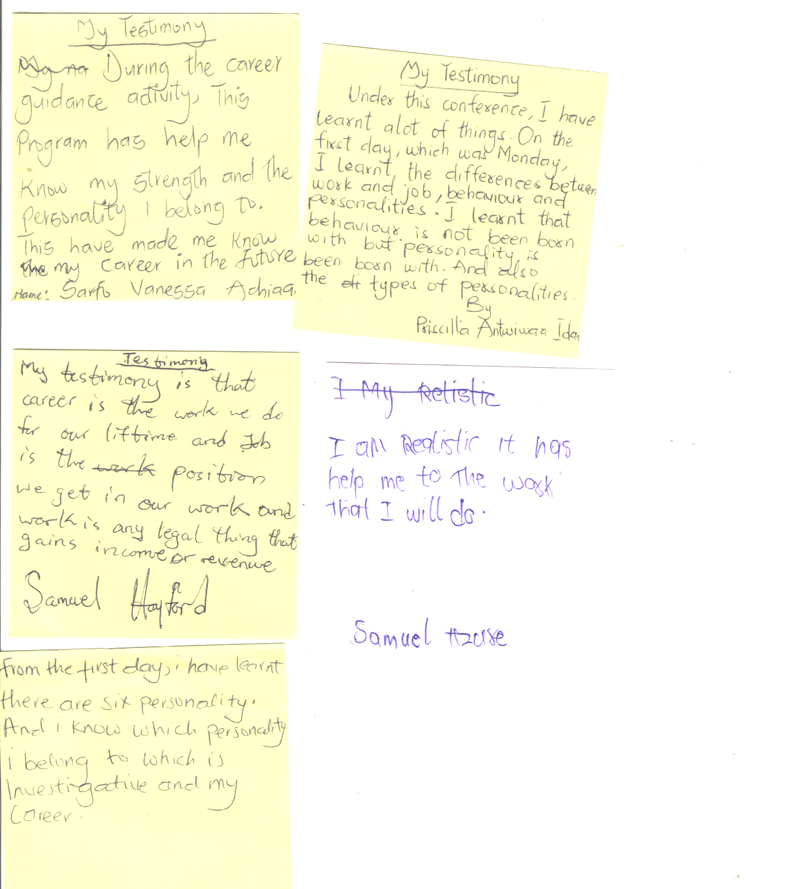 My Testimony
During the career
guidance activity, This
Program has help me
Know my strength and the
Personality I belong to.
This have made me know
my career in the future
Name: Sarfo Vanessa Achiaa
My Testimony
Under this conference, I have
learnt alot of things. On the
first day, which was Monday,
I learnt, the differences between
work and job, behaviour and
personalities. I learnt that
behaviour is not been born
with but personality is
been born with. And also
the types of personalities.
By
Priscilla Antwiwaa
Testimony
My testimony is that
career is the work we do
for our liftime and Job
is the work position
we get in our work and
work is any legal thing that
gains income or revenue
Samuel Hayford
I My Retistic
I am Realistic it has
help me to the work
that I will do.
Samuel
from the first day, i have learnt
there are six personality.
And i know which personality
i belong to which is
Investigative and my
Career.